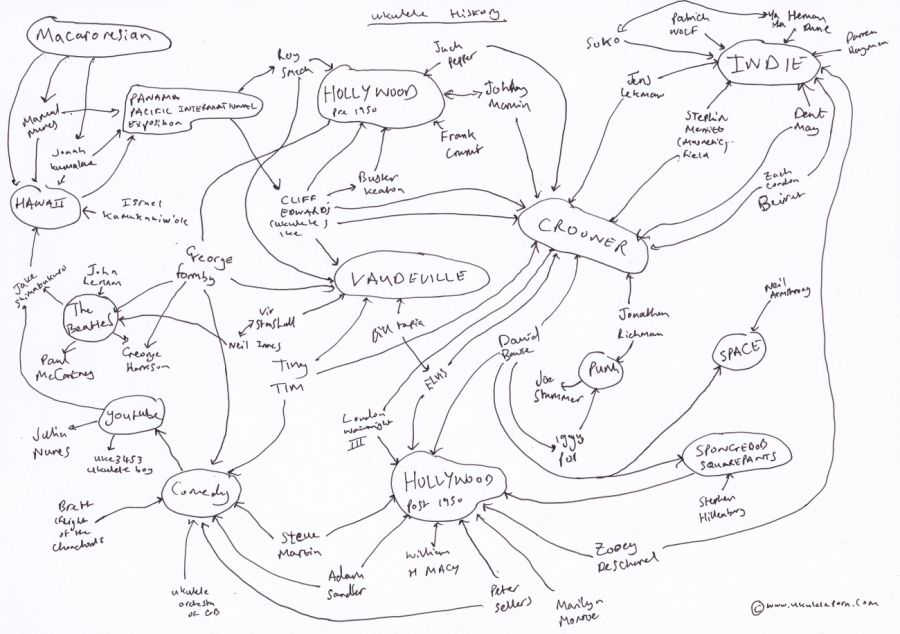 ukulele History
Macaronesian
Manuel
nunes
Jonah
kumalae
HAWAII
Israel
Kamakawiwo'ole
PANAMA
PACIFIC INTERNATIONAL
Exposition
Roy
Smeck
HOLLYWOOD
Pre 1950
Jack
pepper
Johnny
Marvin
Frank
Crumit
Buster
Keaton
CLIFF
EDWARDS
(ukulele
ike
VAUDEVILLE
CROONER
Soko
Patrick
Wolf
Ya
Ya
Herman
Dune
Darren
Hayman
INDIE
Jens
Lekman
Stephin
Merritt
(Magnetic
Field
Dent
May
Zach
Condon
Beirut
George
formby
Jake
Shimabukuro
John
Lennon
The
Beatles
Paul
McCartney
George
Harrison
Viv
Stanshall
Neil Innes
Tiny
TIM
Bill tapia
ELVIS
David
Bowie
Jonathan
Richman
Punk
Joe
Strummer
iggy
pop
Neil
Armstrong
SPACE
youtube
Julia
Nunes
uke3453
ukulele boy
Comedy
Brett
(flight
of the
Conchords
ukulele
orchestra
of GB
Loudon
Wainwright
III
HOLLYWOOD
post 1950
Steve
Martin
Adam
Sandler
William
H MACY
Peter
Sellers
Marilyn
Monroe
Zooey
Deschanel
SPONGEBOB
SQUAREPANTS
Stephen
Hillenburg
© www.ukuleleporn.com